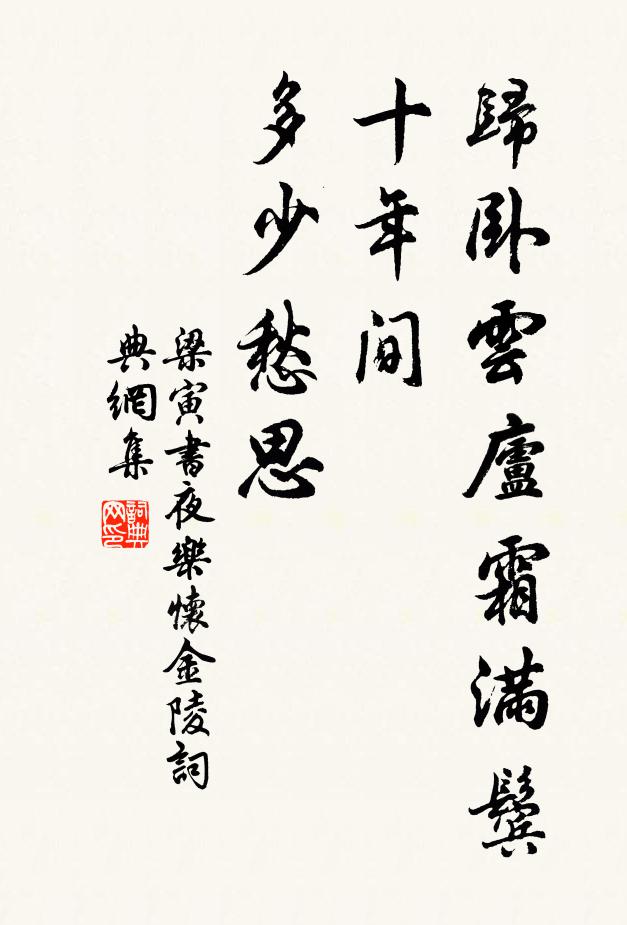 歸臥雲廬霜滿鬢
十年間
多少愁思
梁寅書夜樂懷金陵詞
典網集
詞典网印